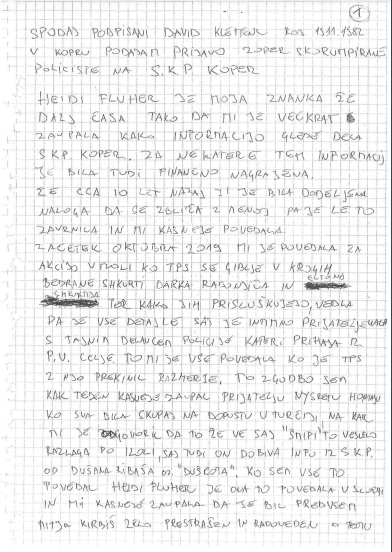 1
SPODAJ PODPISANI DAVID KLEMENC ROJ 15.11.1982
V KOPRU PODAJAM PRIJAVO ZOPER SKORUMPIRANE
POLICISTE NA S.K.P KOPER
HEIDI FLUHER JE MOJA ZNANKA ŽE
DALJ ČASA TAKO DA MI JE VEČKRAT
ZAUPALA KAKO INFORMACIJO GLEDE DELA
S.K.P. KOPER. ZA NEKATERE TEH INFORMACIJ
JE BILA TUDI FINANČNO NAGRAJENA.
ŽE CCA 10 LET NAZAJ JI JE BILA DODELJENA
NALOGA DA SE ZBLIŽA Z MENOJ PA JE LE TO
ZAVRNILA IN MI KASNEJE POVEDALA.
ZAČETEK OKTOBRA 2019 MI JE POVEDALA ZA
AKCIJO V IZOLI KO TPS SE GIBLJE V KROGIH
BEDRANE SHKURTI DARKA RADONJIČA IN
TER KAKO JIH PRISLUŠKUJEJO, VEDLA
PA JE VSE DETAJLE SAJ JE INTIMNO PRIJATELJEVALA
S TAJNIM DELAVCEM POLICIJE KATERI PRIHAJA IZ
P.U. CELJE. TO MI JE VSE POVEDALA KO JE TPS
Z NJO PREKINIL RAZMERJE. TO ZGODBO SEM
KAK TEDEN KASNEJE ZAUPAL PRIJATELJU
KO SVA BILA SKUPAJ NA DOPUSTU V TURČIJI NA KAR
MI JE ODGOVORIL DA TO ŽE VE SAJ "ŠNIPI" TO VESELO
RAZLAGA PO IZOLI, SAJ TUDI ON DOBIVA INFO IZ S.K.P.
OD DUŠANA RIBAŠA OZ. "DUŠKOTA". KO SEM VSE TO
POVEDAL HEIDI FLUHER JE ONA TO POVEDALA V SLUŽBI
IN MI KASNEJE ZAUPALA DA JE BIL PREDVSEM
MITJA KIRBIŠ ZELO PRESTRAŠEN IN RADOVEDEN O TEMU